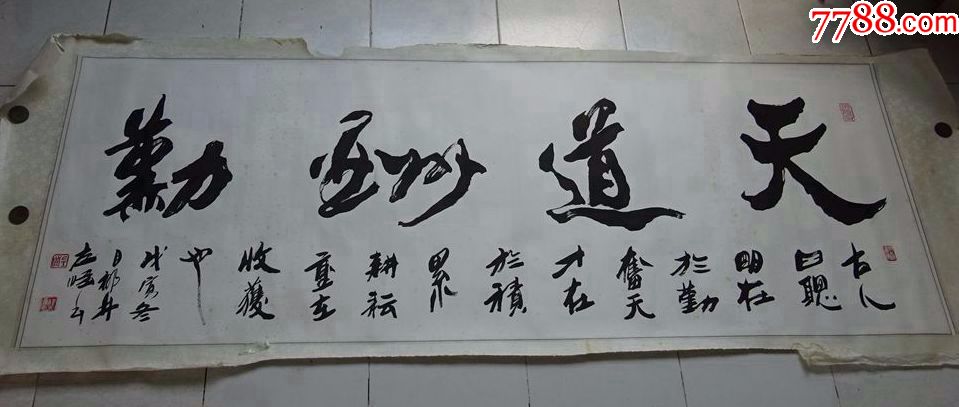 7788.com
天道酬勤
古人
曰聰
明在
於勤
奮天
才在
於積
累
耕耘
在
收獲
也
戊寅冬
日